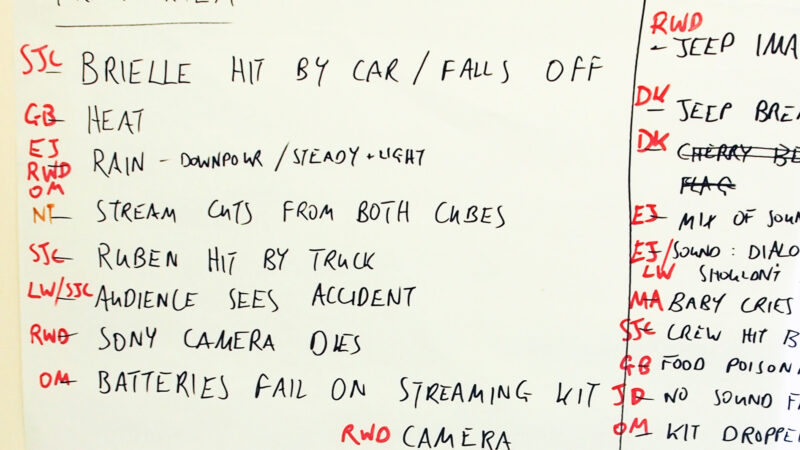 SJC – BRIELLE HIT BY CAR / FALLS OFF
GB – HEAT
EJ
RWD – RAIN – DOWNPOUR / STEADY + LIGHT
OM
NT – STREAM CUTS FROM BOTH CUBES
SJC – RUBEN HIT BY TRUCK
LW/SJC – AUDIENCE SEES ACCIDENT
RWD – SONY CAMERA DIES
OM – BATTERIES FAIL ON STREAMING KIT
RWD CAMERA
RWD
– JEEP IMA
DK
– JEEP BREA
DK – CHERRY BE
FLAG
EJ – MIX OF SOUN
EJ/ SOUND : DIALO
LW SHOULDN'T
MA – BABY CRIES
SJC – CREW HIT B
GB – FOOD POISON
JD – NO SOUND F
OM – KIT DROPPE